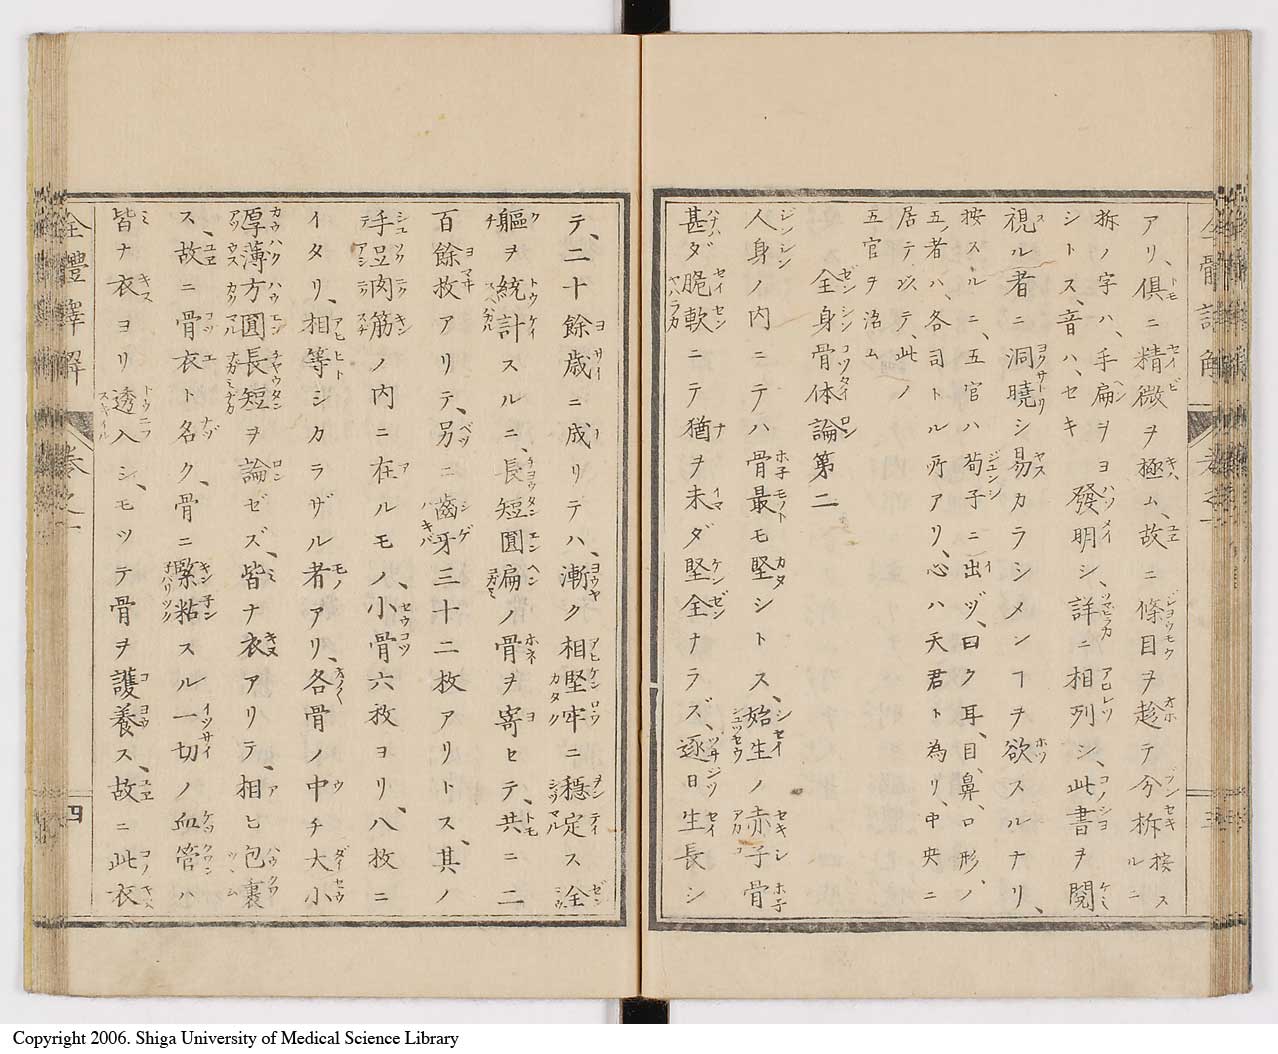 アリ、倶ニ精微ヲ極ム、故ニ條目ヲ趁テ分柝 按スルニ
柝ノ字ハ、手扁ヲヨシトス、音ハ、セキ 發明シ、詳ニ相列シ、此書ヲ閲
視ル者ニ洞曉シ易カラシメンヿヲ欲スルナリ、
按スルニ、五官ハ荀子ニ出ヅ、曰ク耳、目、鼻、口形ノ
五ノ者ハ、各司トル所アリ、心ハ天君ト為リ、中央ニ
居テ、以テ、此ノ
五官ヲ治ム
全身骨体論第二
人身ノ内ニテハ骨最モ堅シトス、始生ノ赤子骨
甚ダ脆軟ニテ猶ヲ未ダ堅全ナラズ、逐日生長シ
テ、二十餘歳ニ成リテハ、漸ク相堅牢ニ穏定ス全
軀ヲ統計スルニ、長短圓扁ノ骨ヲ寄セテ、共ニ二
百餘枚アリテ、另ニ齒牙三十二枚アリトス、其ノ
手足肉筋ノ内ニ在ルモノ、小骨六枚ヨリ、八枚ニ
イタリ、相等シカラザル者アリ、各骨ノ中チ大小
厚薄方圓長短ヲ論ゼズ、皆ナ衣アリテ、相ヒ包裏
ス、故ニ骨衣ト名ク、骨ニ緊粘スル一切ノ血管ハ
皆ナ衣ヨリ透入シ、モツテ骨ヲ護養ス、故ニ此衣
全體譯解 巻之一 四
Copyright 2006. Shiga University of Medical Science Library